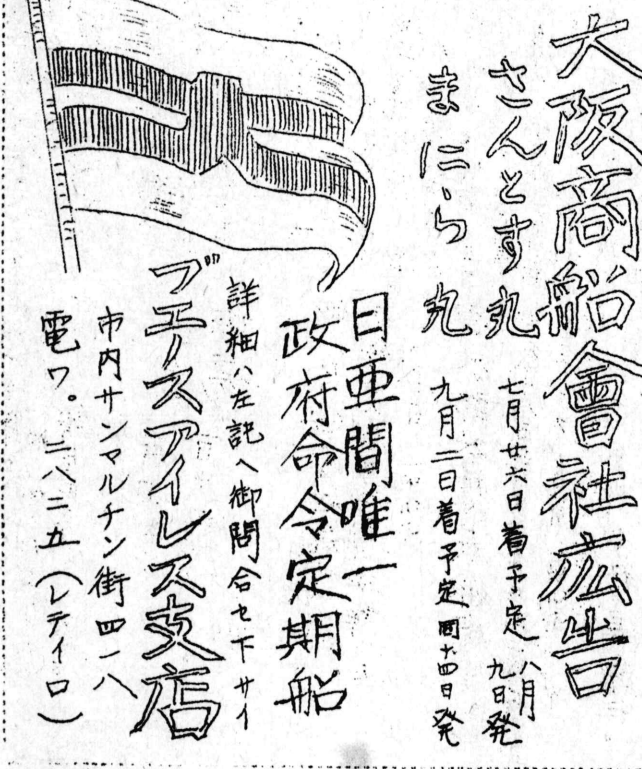 大阪商船會社広告
さんとす丸 七月廿六日着予定 八月九日発
まにら丸 九月二日着予定 同十四日発
日亜間唯一
政府命令定期船
詳細ハ左記ヘ御問合セ下サイ
ブエノスアイレス支店
市内サンマルチン街四一八
電ワ。二八二五(レテイロ)